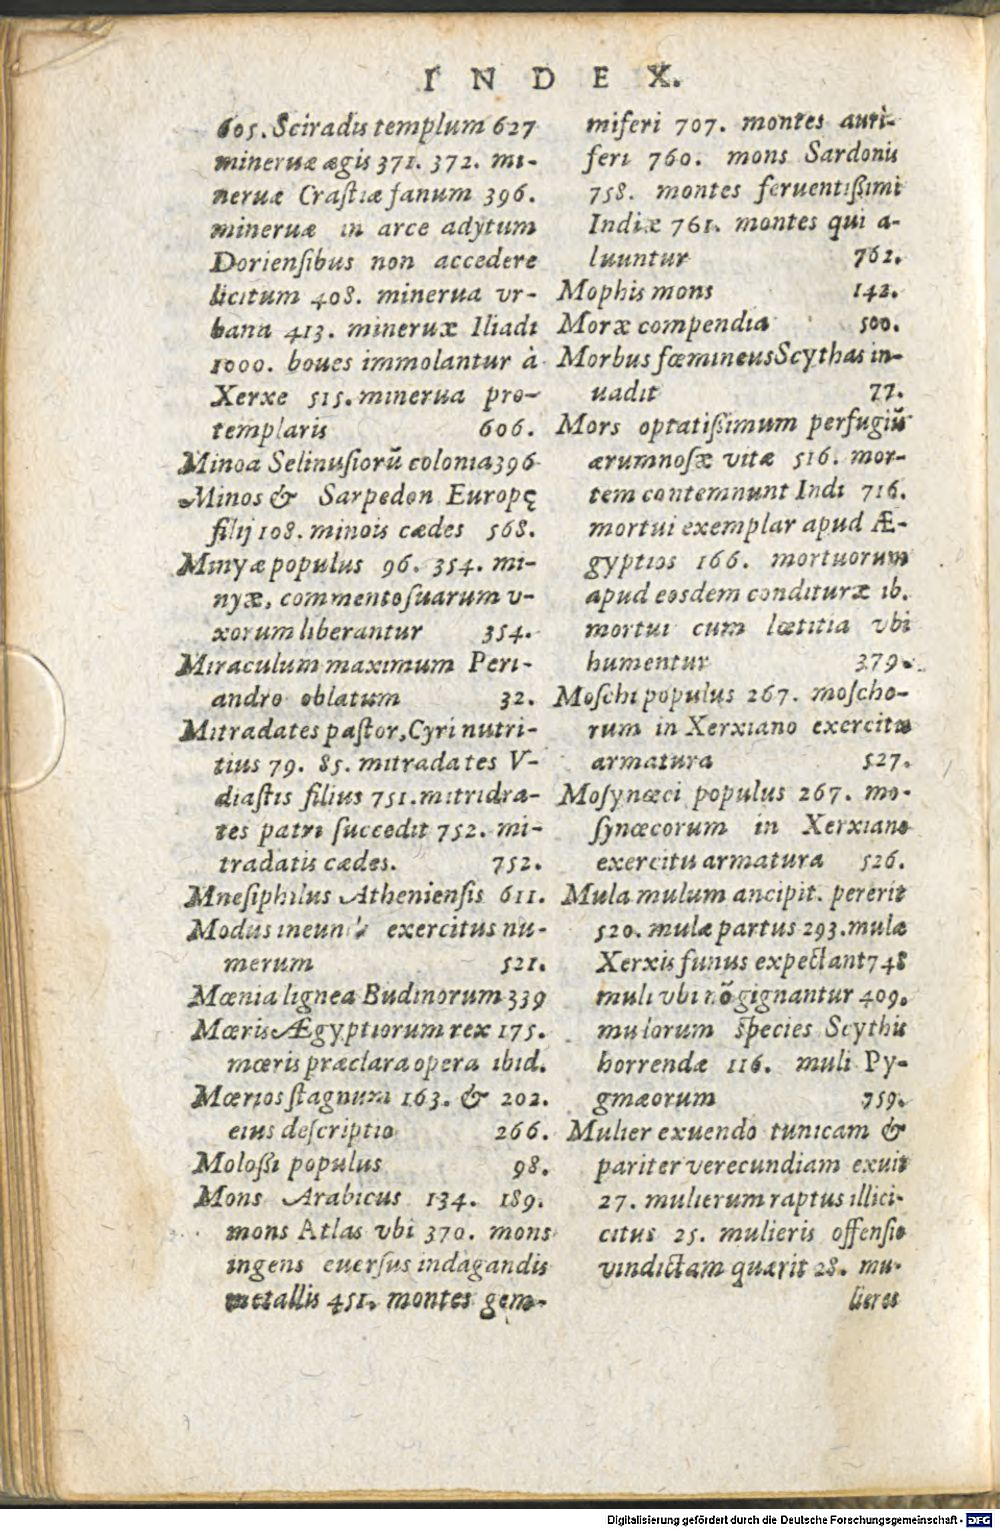 INDEX.
605. Sciradis templum 627
mineruæ ægis 371. 372. mi-
neruæ Crastiæ fanum 396.
mineruæ in arce adytum
Doriensibus non accedere
licitum 408. minerua vr-
bana 413. mineruæ Iliadi
1000. boues immolantur à
Xerxe 515. minerua pro-
templaris 606.
Minoa Selinusiorū colonia 396
Minos & Sarpedon Europę
filij 108. minois cædes 568.
Minyæ populus 96. 354. mi-
nyæ, commento suarum v-
xorum liberantur 354.
Miraculum maximum Peri-
andro oblatum 32.
Mitradates pastor, Cyri nutri-
tius 79. 85. mitradates V-
diastis filius 751. mitridra-
tes patri succedit 752. mi-
tradatis cædes. 752.
Mnesiphilus Atheniensis 611.
Modus ineun exercitus nu-
merum 521.
Mœnia lignea Budinorum 339
Mœris Ægyptiorum rex 175.
mœris præclara opera ibid.
Mœrios stagnum 163. & 202.
eius descriptio 266.
Molossi populus 98.
Mons Arabicus 134. 189.
mons Atlas vbi 370. mons
ingens euersus indagandis
metallis 451. montes gem-
miferi 707. montes auri-
feri 760. mons Sardonis
758. montes feruentissimi
Indiæ 761. montes qui a-
luuntur 762.
Mophis mons 142.
Moræ compendia 500.
Morbus fœmineus Scythas in-
uadit 77.
Mors optatissimum perfugiū
ærumnosæ vitæ 516. mor-
tem contemnunt Indi 716.
mortui exemplar apud Æ-
gyptios 166. mortuorum
apud eosdem condituræ ib.
mortui cum lœtitia vbi
humentur 379.
Moschi populus 267. moscho-
rum in Xerxiano exercitu
armatura 527.
Mosynœci populus 267. mo-
synœcorum in Xerxiano
exercitu armatura 526.
Mula mulum ancipit. pererit
520. mulæ partus 293. mula
Xerxis funus expectant 748
muli vbi nō gignantur 409.
mulorum species Scythis
horrendæ 116. muli Py-
gmæorum 759.
Mulier exuendo tunicam &
pariter verecundiam exuit
27. mulierum raptus illici-
citus 25. mulieris offensio
vindictam quærit 28. mu-
lieres
Digitalisierung gefördert durch die Deutsche Forschungsgemeinschaft - DFG